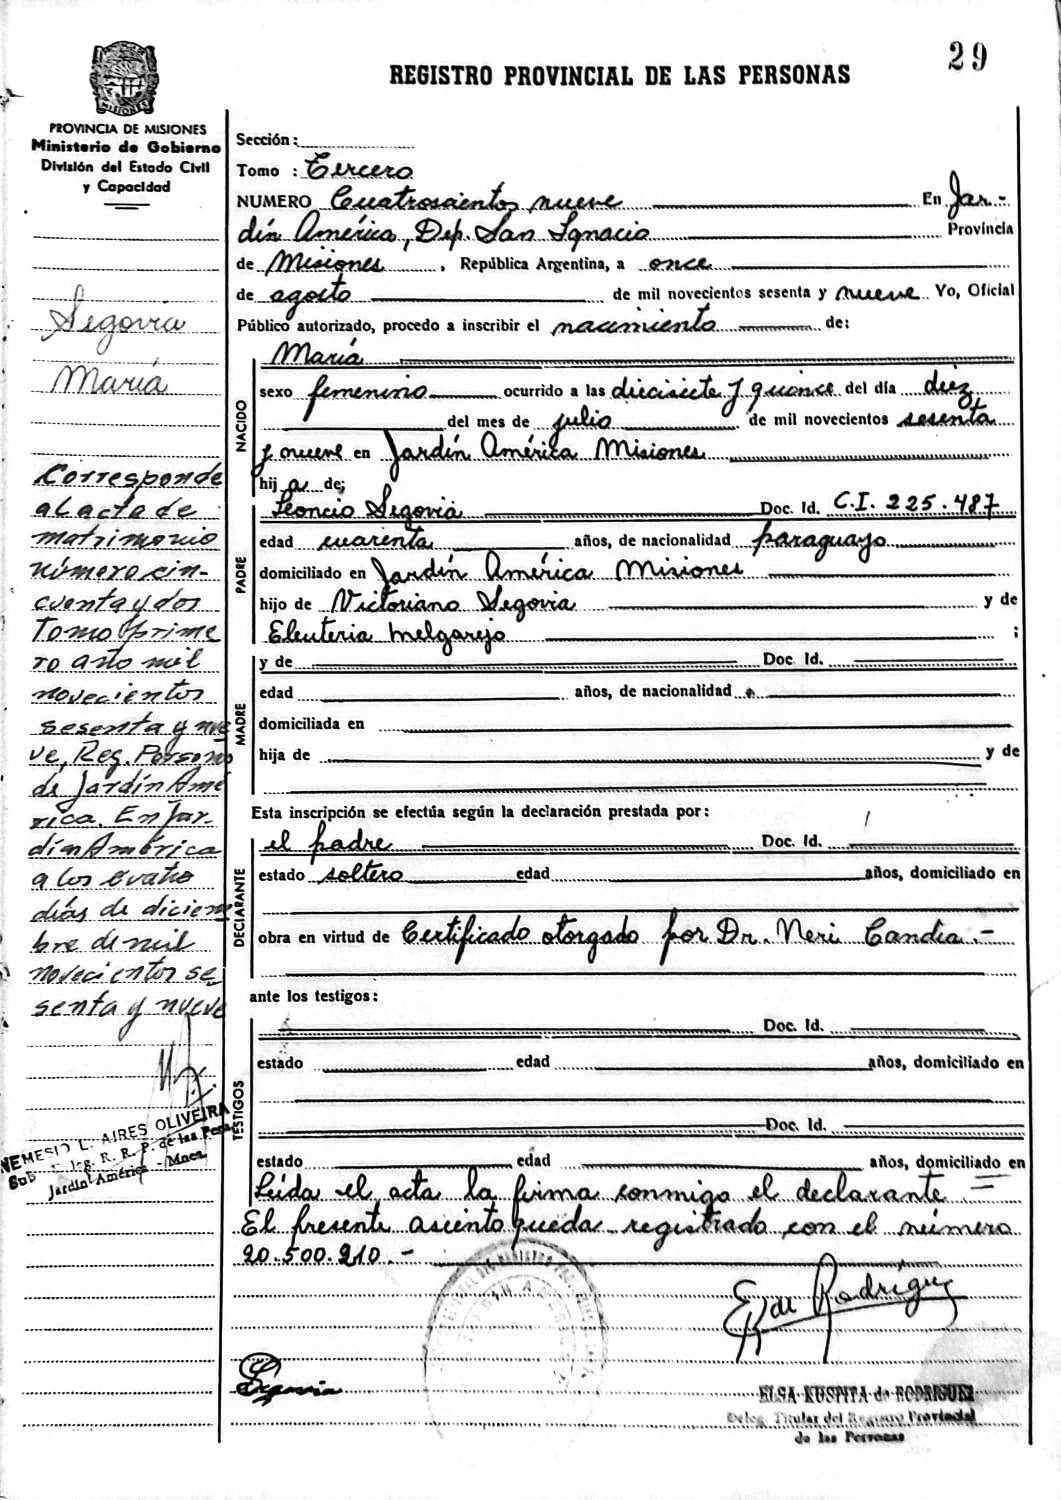 29
REGISTRO PROVINCIAL DE LAS PERSONAS
MISIONES
PROVINCIA DE MISIONES
Ministerio de Gobierno
División del Estado Civil
y Capacidad
Segovia
María
Corresponde
al acta de
matrimonio
número cin-
cuenta y dos
Tomo prime
ro año mil
novecientos
sesenta y nue
ve, Reg. Personas
de Jardín Amé
rica. En Jar-
dín América
a los cuatro
días de diciem
bre de mil
novecientos se
senta y nueve
NEMESIO L. AIRES OLIVEIRA
R. R. P. de las Pers.
Jardín América - Mnes.
Sección:
Tomo : Tercero
NUMERO Cuatrosientos nueve En Jar-
dín América, Dep. San Ignacio Provincia
de Misiones, República Argentina, a once
de agosto de mil novecientos sesenta y nueve Yo, Oficial
Público autorizado, procedo a inscribir el nacimiento de:
NACIDO
María
sexo femenino ocurrido a las diecisiete y quince del día diez
del mes de julio de mil novecientos sesenta
y nueve en Jardín América Misiones
hija de;
PADRE
Leoncio Segovia Doc. Id. C.I. 225.487
edad cuarenta años, de nacionalidad paraguayo
domiciliado en Jardín América Misiones
hijo de Victoriano Segovia y de
Eleuteria Melgarejo ;
MADRE
y de Doc. Id.
edad años, de nacionalidad
domiciliada en
hija de y de
Esta inscripción se efectúa según la declaración prestada por:
DECLARANTE
el padre Doc. Id.
estado soltero edad años, domiciliado en
obra en virtud de Certificado otorgado por Dr. Neri Candia.-
ante los testigos:
TESTIGOS
Doc. Id.
estado edad años, domiciliado en
Doc. Id.
estado edad años, domiciliado en
Leída el acta la firma conmigo el declarante =
El presente asiento queda registrado con el número
20.500.210.-
E K de Rodríguez
Segovia
ELSA KUSPITA de RODRIGUEZ
Deleg. Titular del Registro Provincial
de las Personas